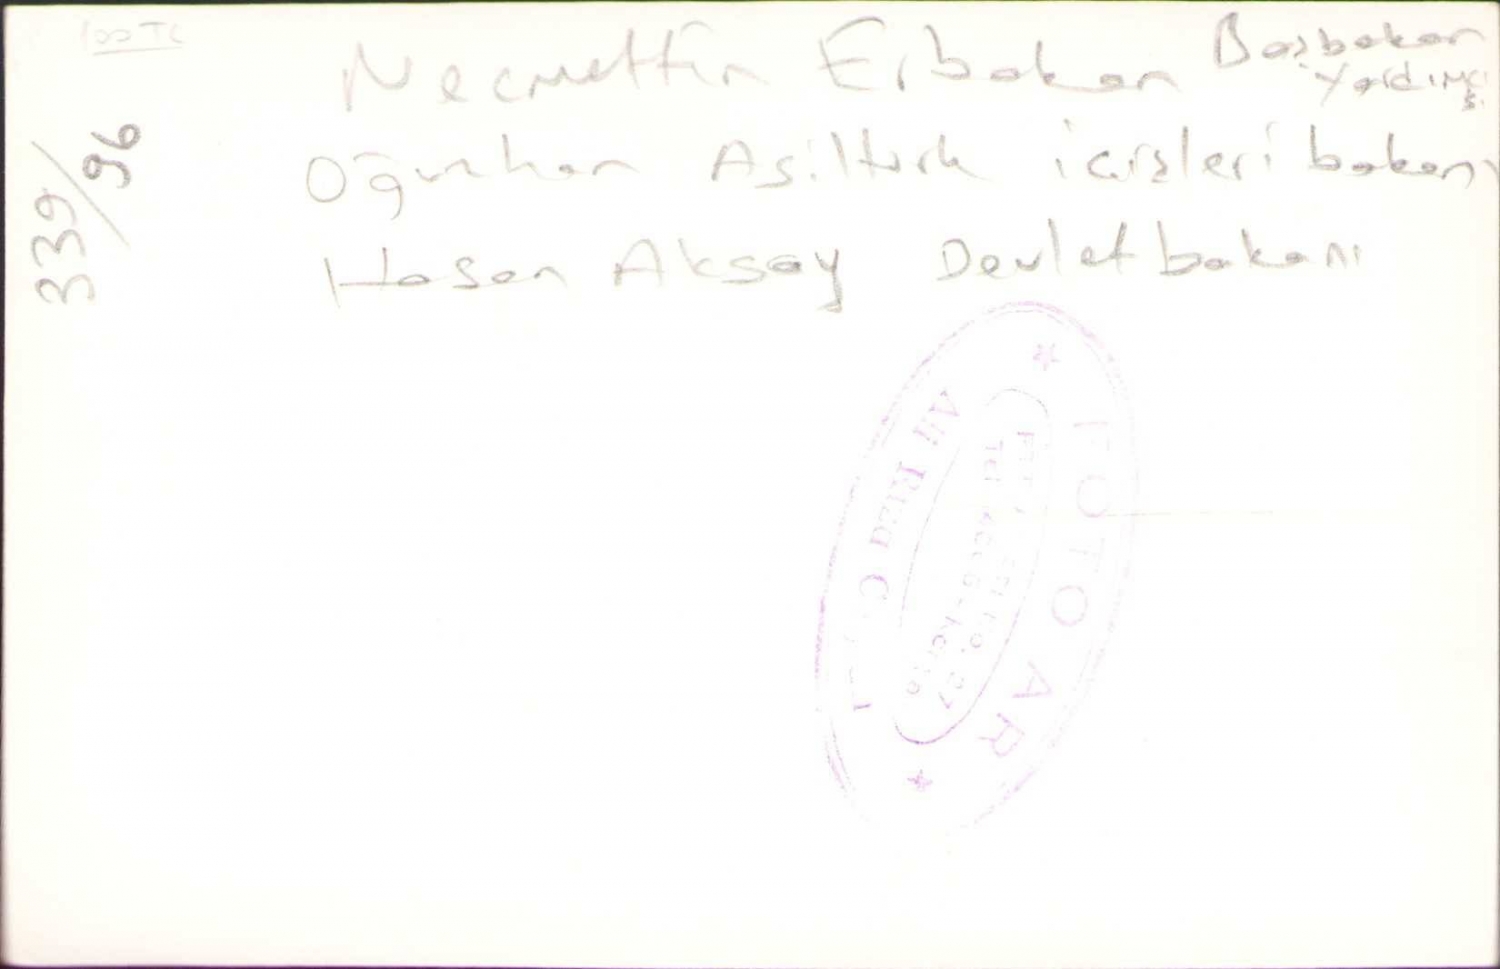 100TL
Necmettin Erbakan Başbakan
Yardımcı
sı.
Oğuzhan Asiltürk içişleri bakanı
Hasan Aksoy Devlet bakanı
339/96
FOTO AR
Ali Rıza
Tel
27